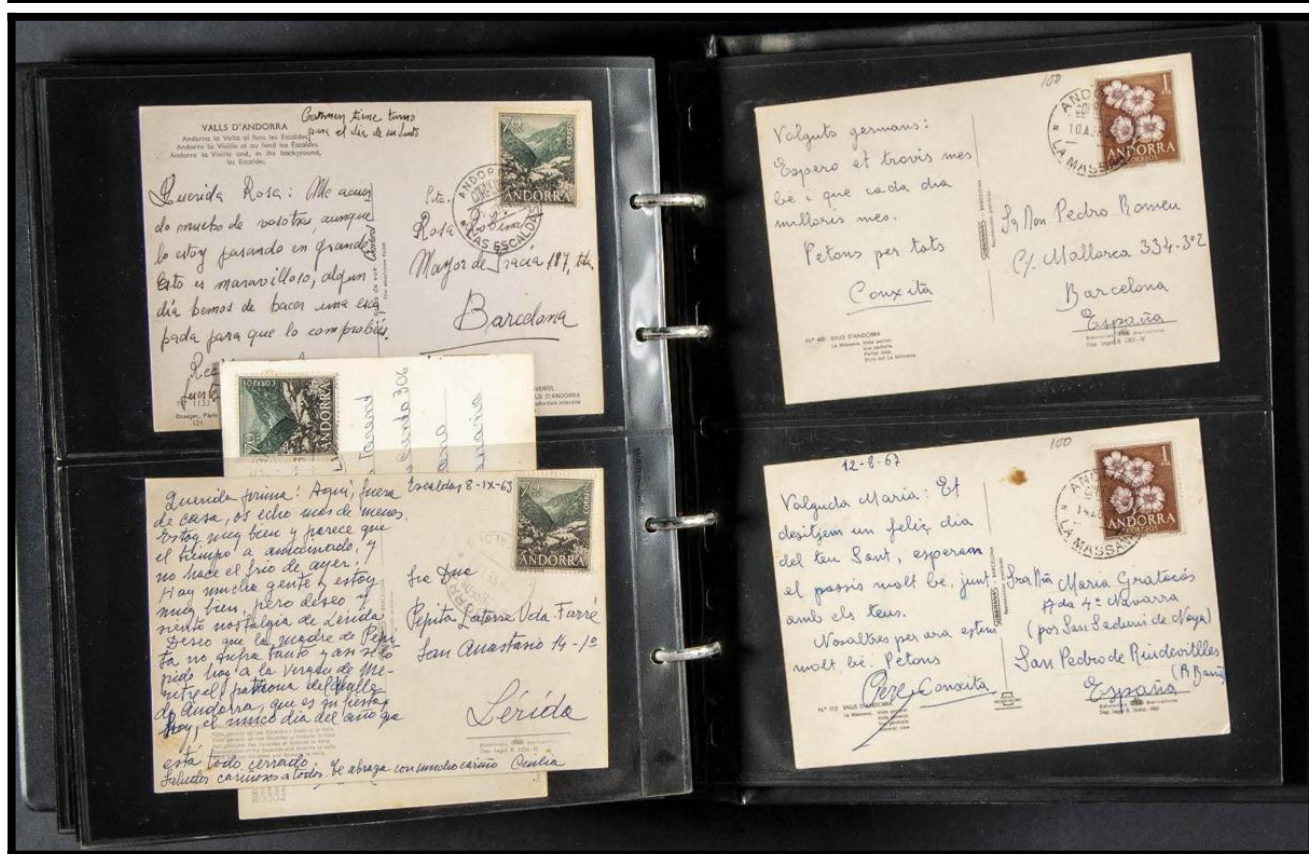 VALLS D'ANDORRA
Andorra la Vella al fons les Escaldes
Andorre la Vieille et au fond les Escaldes
Andorra la Vieille and, in the background,
les Escaldes
Carmen tiene turno
para el día de su Santo
Querida Rosa: Me acuer
do mucho de vosotras, aunque
lo estoy pasando en grande
Esto es maravilloso, algun
día hemos de hacer una esca
pada para que lo comprobéis.
70
CORREOS
ANDORRA
LAS ESCALDAS
Rosa
Mayor de Gracia 187,
Barcelona
1133
Draeger, Paris
VALLS D'ANDORRA
70
CORREOS
ANDORRA
306
España
Escaldas 8-IX-63
Querida prima: Aquí, fuera
de casa, os echo más de menos.
Estoy muy bien y parece que
el tiempo a amainado, y
no hace el frío de ayer.
Hay mucha gente y estoy
muy bien, pero deseo y
siento nostalgia de Lérida
Deseo que la madre de Pepi
ta no sufra tanto y asi se lo
pido hoy a la Virgen de Me-
ritxell, patrona del Valle
de Andorra, que es su fiesta,
hoy, el unico dia del año que
está todo cerrado.
Saludos cariñosos a todos. Te abraza con mucho cariño Cecilia
70
ANDORRA
Sra Dña
Pepita Latorre Vda. Farré
San Anastasio 14-1º
Lérida
100
Volguts germans:
Espero et trovis mes
bé i que cada dia
milloris mes.
Petons per tots
Conxita
1
ANDORRA
CORREOS
LA MASSANA
Sr Don Pedro Romeu
C/. Mallorca 334-3º2ª
Barcelona
España
Nº 400 VALLS D'ANDORRA
La Massana. Vista parcial
Vue partielle
Partial view
100
12-8-67
Volguda Maria: Et
desitjem un feliç dia
del teu Sant, esperem
el passis molt bé, junt
amb els teus.
Nosaltres per ara estem
molt bé. Petons
Pere, Conxita
1
ANDORRA
CORREOS
LA MASSANA
Sra Dña Maria Gratacós
Ada 4ª Navarra
(por San Sadurni de Noya)
San Pedro de Riudevitlles
España
VALLS D'ANDORRA